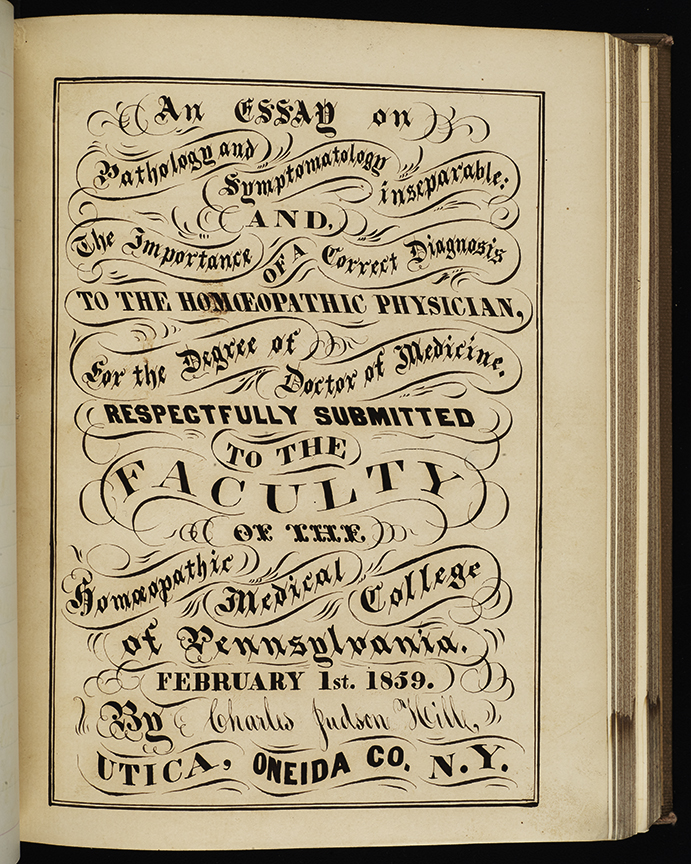 An ESSAY on
Pathology and Symptomatology inseparable:
AND,
The Importance OF A Correct Diagnosis
TO THE HOMŒOPATHIC PHYSICIAN,
For the Degree of Doctor of Medicine.
RESPECTFULLY SUBMITTED
TO THE
FACULTY
OF THE
Homœopathic Medical College
of Pennsylvania.
FEBRUARY 1st. 1859.
By Charles Judson Hill,
UTICA, ONEIDA CO. N.Y.